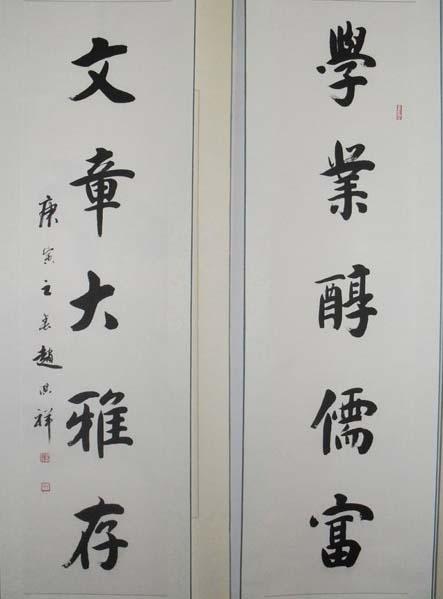 學業醇儒富
文章大雅存
庚寅之春趙洪祥